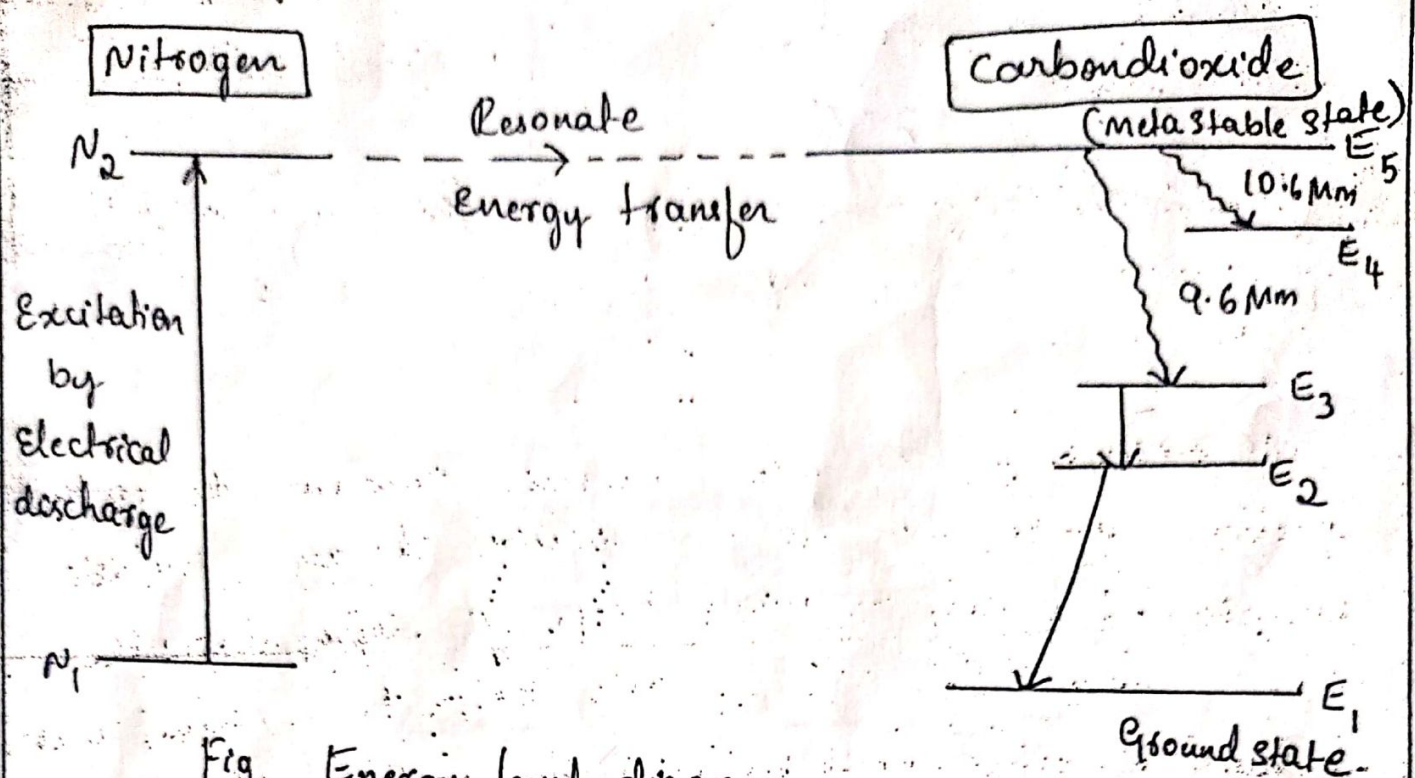 Nitrogen
Carbondioxide
(Metastable state)
Resonate
N2
E5
Energy transfer
10.6 Mm
E4
9.6 Mm
Excitation
by
Electrical
discharge
E3
E2
N1
E1
Ground state.
Fig
Energy level